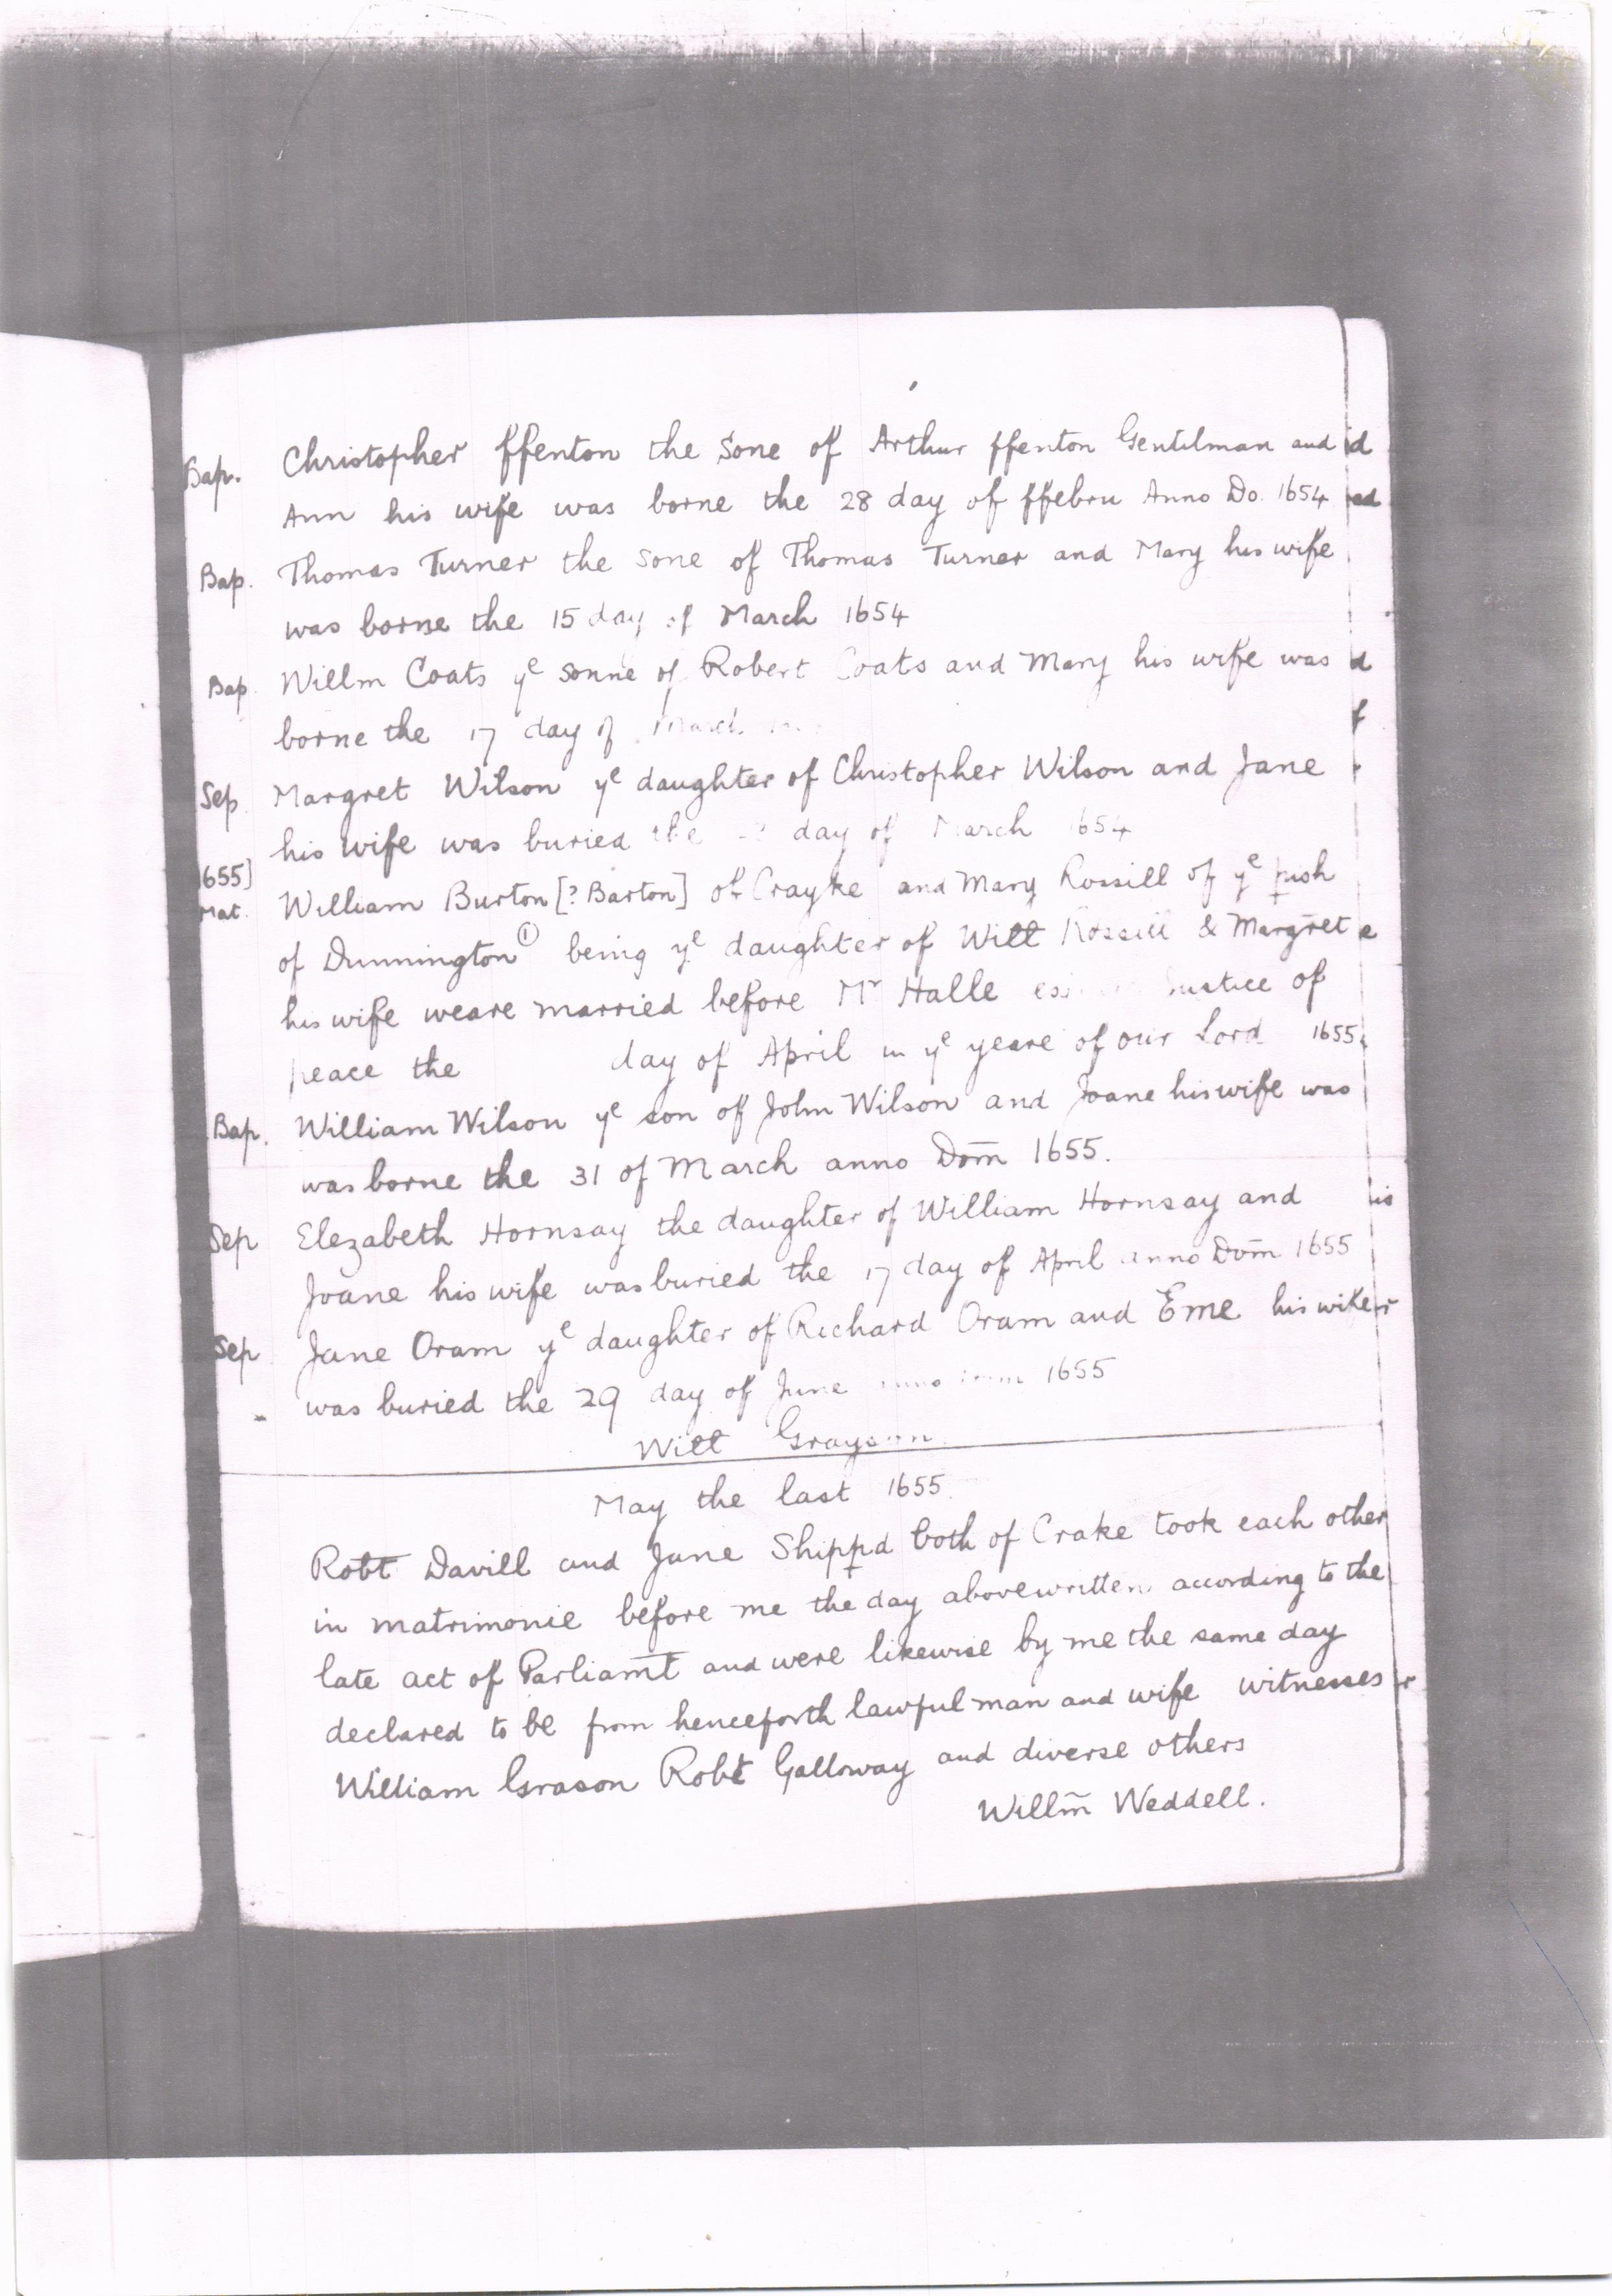 Bap. Christopher ffenton the Sone of Arthur ffenton Gentilman and
Ann his wife was borne the 28 day of ffebru Anno Do. 1654
Bap. Thomas Turner the Sone of Thomas Turner and Mary his wife
was borne the 15 day of March 1654
Bap. Willm Coats yᵉ sonne of Robert Coats and Mary his wife was
borne the 17 day of March
Sep. Margret Wilson yᵉ daughter of Christopher Wilson and Jane
his wife was buried the day of March 1654
1655]
Mat. William Burton [? Barton] of Crayke and Mary Rossill of yᵉ pish
of Dunnington ① being yᵉ daughter of Willt Rossill & Margret
his wife weare married before Mʳ Halle Justice of
peace the day of April in yᵉ yeare of our Lord 1655
Bap. William Wilson yᵉ son of John Wilson and Joane his wife was
was borne the 31 of March anno Dom̄ 1655.
Sep Elezabeth Hornsay the daughter of William Hornsay and
Joane his wife was buried the 17 day of April anno Dom̄ 1655
Sep Jane Oram yᵉ daughter of Richard Oram and Eme his wife
was buried the 29 day of June anno 1655
Willt Grayson
May the last 1655
Robt Davill and Jane Shippd both of Crake took each other
in matrimonie before me the day abovewritten according to the
late act of Parliam̄t and were likewise by me the same day
declared to be from henceforth lawful man and wife witnesses
William Grason Robt Galloway and diverse others
Willm̄ Weddell.